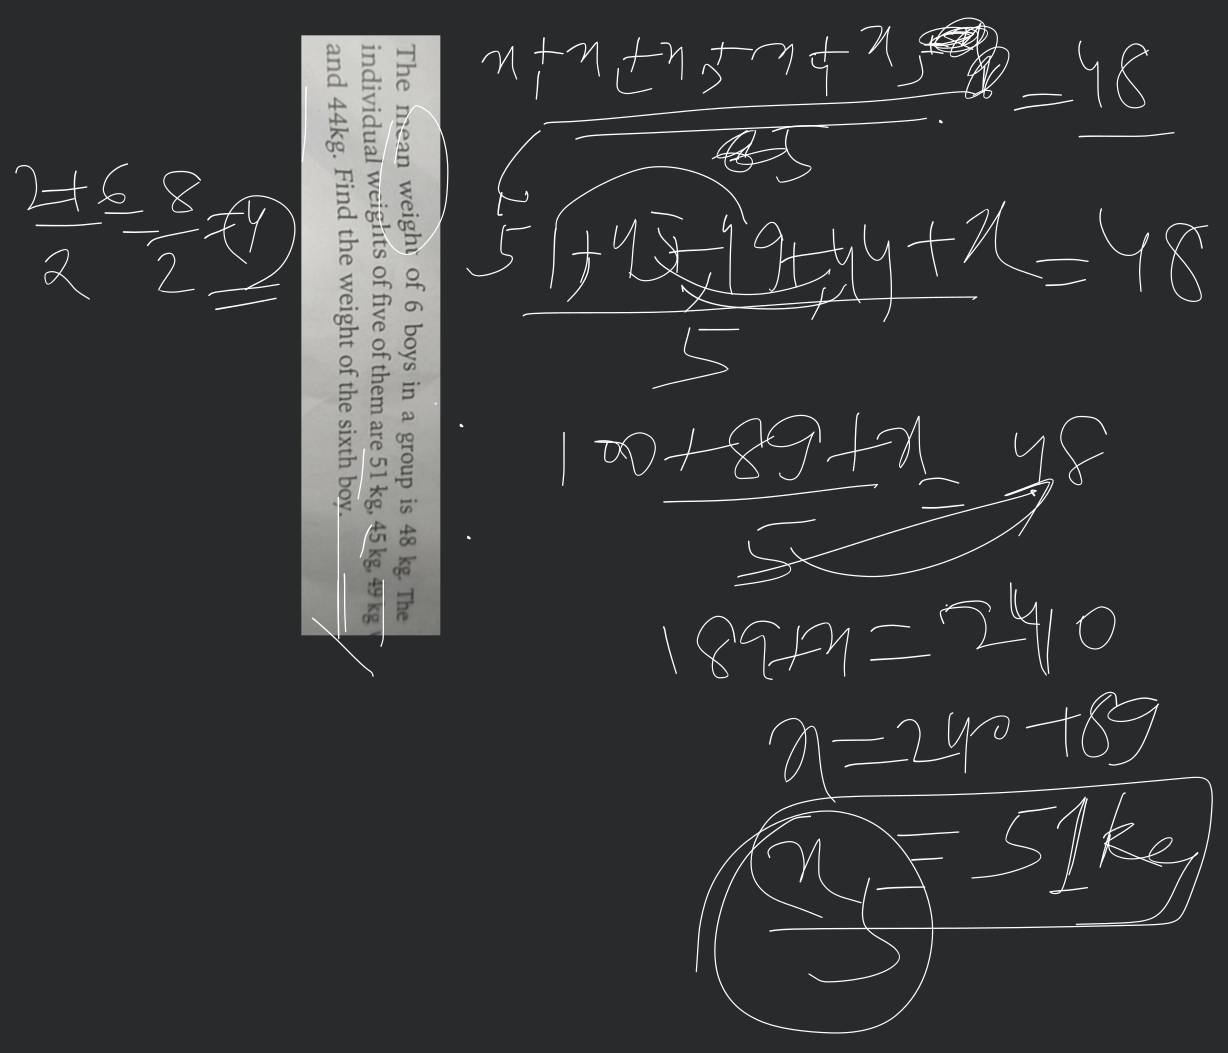 The mean weight of 6 boys in a group is 48 kg. The
individual weights of five of them are 51 kg, 45 kg, 49 kg
and 44kg. Find the weight of the sixth boy.
2+6 = 8 = 4
2 2
= 48
5
51 + 45 + 49 + 44 + x = 48
5
100 + 89 + x = 48
5
189 + x = 240
x = 240 + 89
x = 51 kg
5